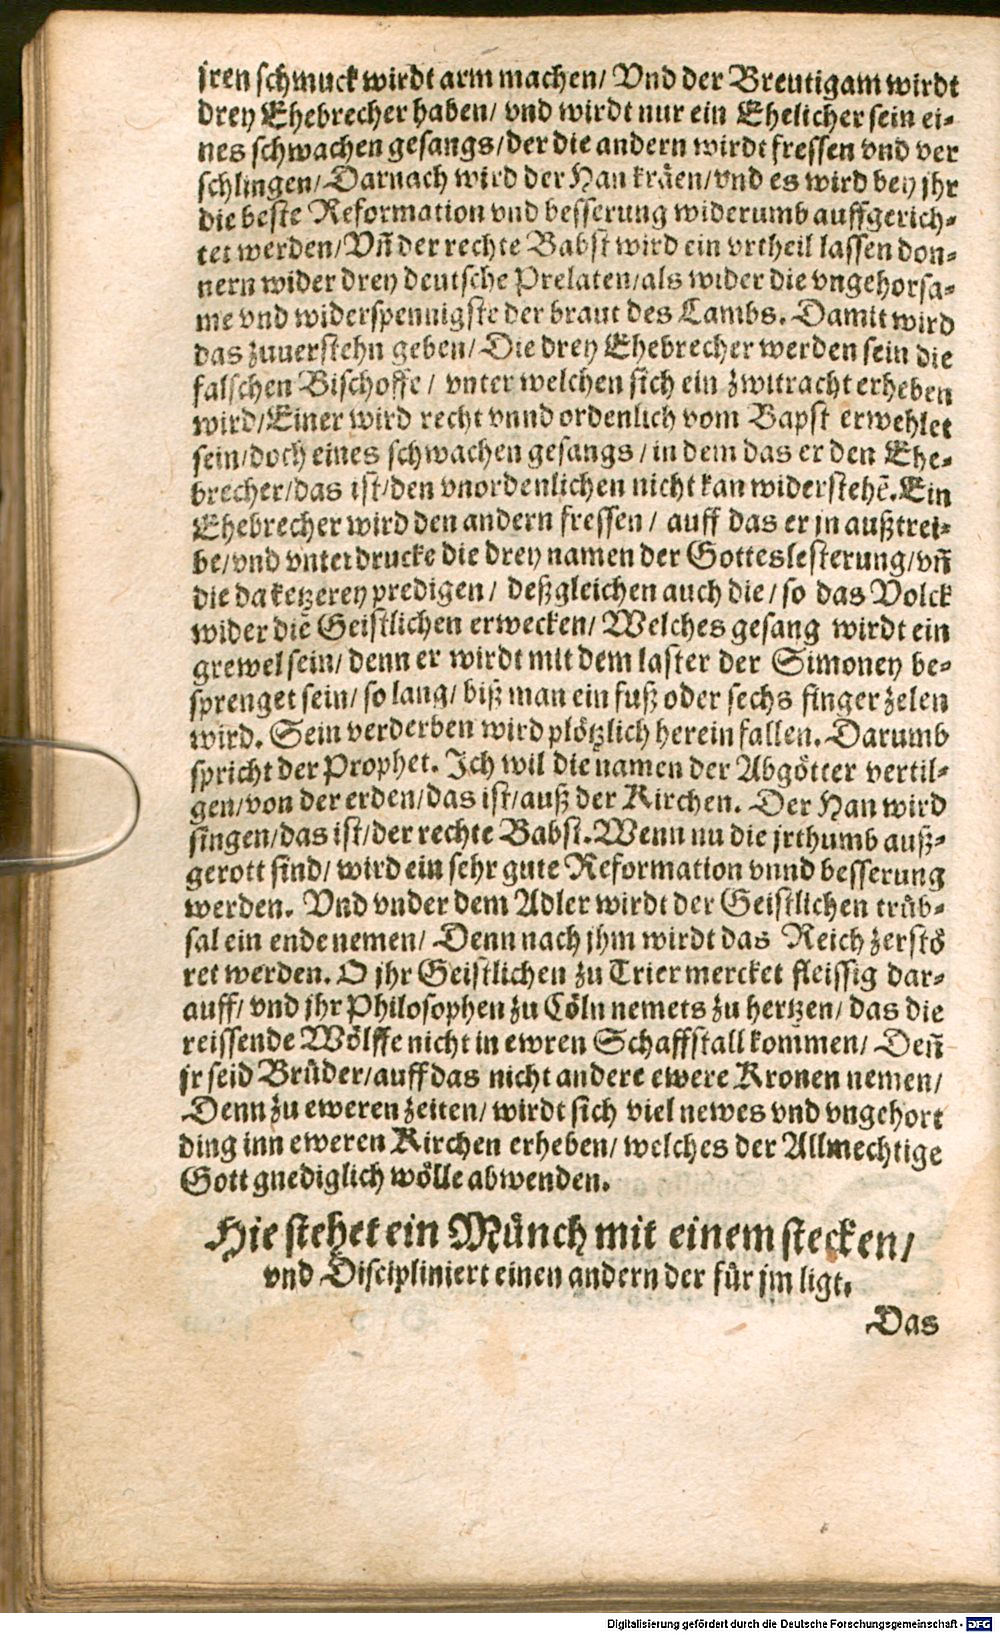 jren schmuck wirdt arm machen/ Vnd der Breutigam wirdt
drey Ehebrecher haben/ vnd wirdt nur ein Ehelicher sein ei-
nes schwachen gesangs/der die andern wirdt fressen vnd ver
schlingen/Darnach wird der Han kräen/vnd es wird bey jhr
die beste Reformation vnd besserung widerumb auffgerich-
tet werden/Vñ der rechte Babst wird ein vrtheil lassen don-
nern wider drey deutsche Prelaten/als wider die vngehorsa-
me vnd widerspennigste der braut des Lambs. Damit wird
das zuuerstehn geben/Die drey Ehebrecher werden sein die
falschen Bischoffe / vnter welchen sich ein zwitracht erheben
wird/Einer wird recht vnnd ordenlich vom Bapst erwehlet
sein/doch eines schwachen gesangs / in dem das er den Ehe-
brecher/das ist/den vnordenlichen nicht kan widerstehẽ.Ein
Ehebrecher wird den andern fressen / auff das er jn außtrei-
be/vnd vnterdrucke die drey namen der Gotteslesterung/vñ
die da ketzerey predigen / deßgleichen auch die / so das Volck
wider die Geistlichen erwecken/ Welches gesang wirdt ein
grewel sein/ denn er wirdt mit dem laster der Simoney be-
sprenget sein/ so lang/ biß man ein fuß oder sechs finger zelen
wird. Sein verderben wird plötzlich herein fallen. Darumb
spricht der Prophet. Ich wil die namen der Abgötter vertil-
gen/von der erden/das ist/auß der Kirchen. Der Han wird
singen/das ist/der rechte Babst.Wenn nu die jrthumb auß-
gerott sind/ wird ein sehr gute Reformation vnnd besserung
werden. Vnd vnder dem Adler wirdt der Geistlichen trüb-
sal ein ende nemen/ Denn nach jhm wirdt das Reich zerstö
ret werden. O jhr Geistlichen zu Trier mercket fleissig dar-
auff/ vnd jhr Philosophen zu Cöln nemets zu hertzen/ das die
reissende Wölffe nicht in ewren Schaffstall kommen/ Deñ
jr seid Brüder/auff das nicht andere ewere Kronen nemen/
Denn zu eweren zeiten/ wirdt sich viel newes vnd vngehort
ding inn eweren Kirchen erheben/ welches der Allmechtige
Gott gnediglich wölle abwenden.
Hie stehet ein Münch mit einem stecken/
vnd Discipliniert einen andern der für jm ligt.
Das
Digitalisierung gefördert durch die Deutsche Forschungsgemeinschaft - DFG